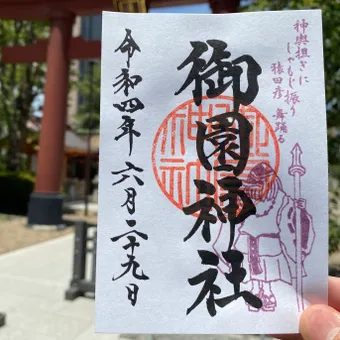 神輿担ぎに
しゃもじ振う
猿田彦 舞踊る
御園神社
令和四年 六月二十九日